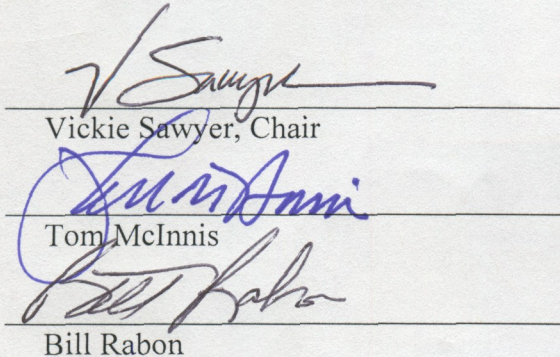 V Sawyer
Vickie Sawyer, Chair
Tom McInnis
Tom McInnis
Bill Rabon
Bill Rabon